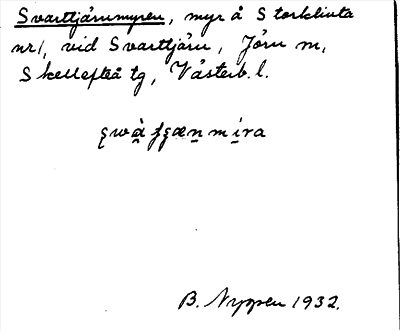 Svarttjärnmyren, myr å Storklinta
nr 1, vid Svarttjärn, Jörn sn,
Skellefteå tg, Västerb. l.
B. Nyppen 1932.